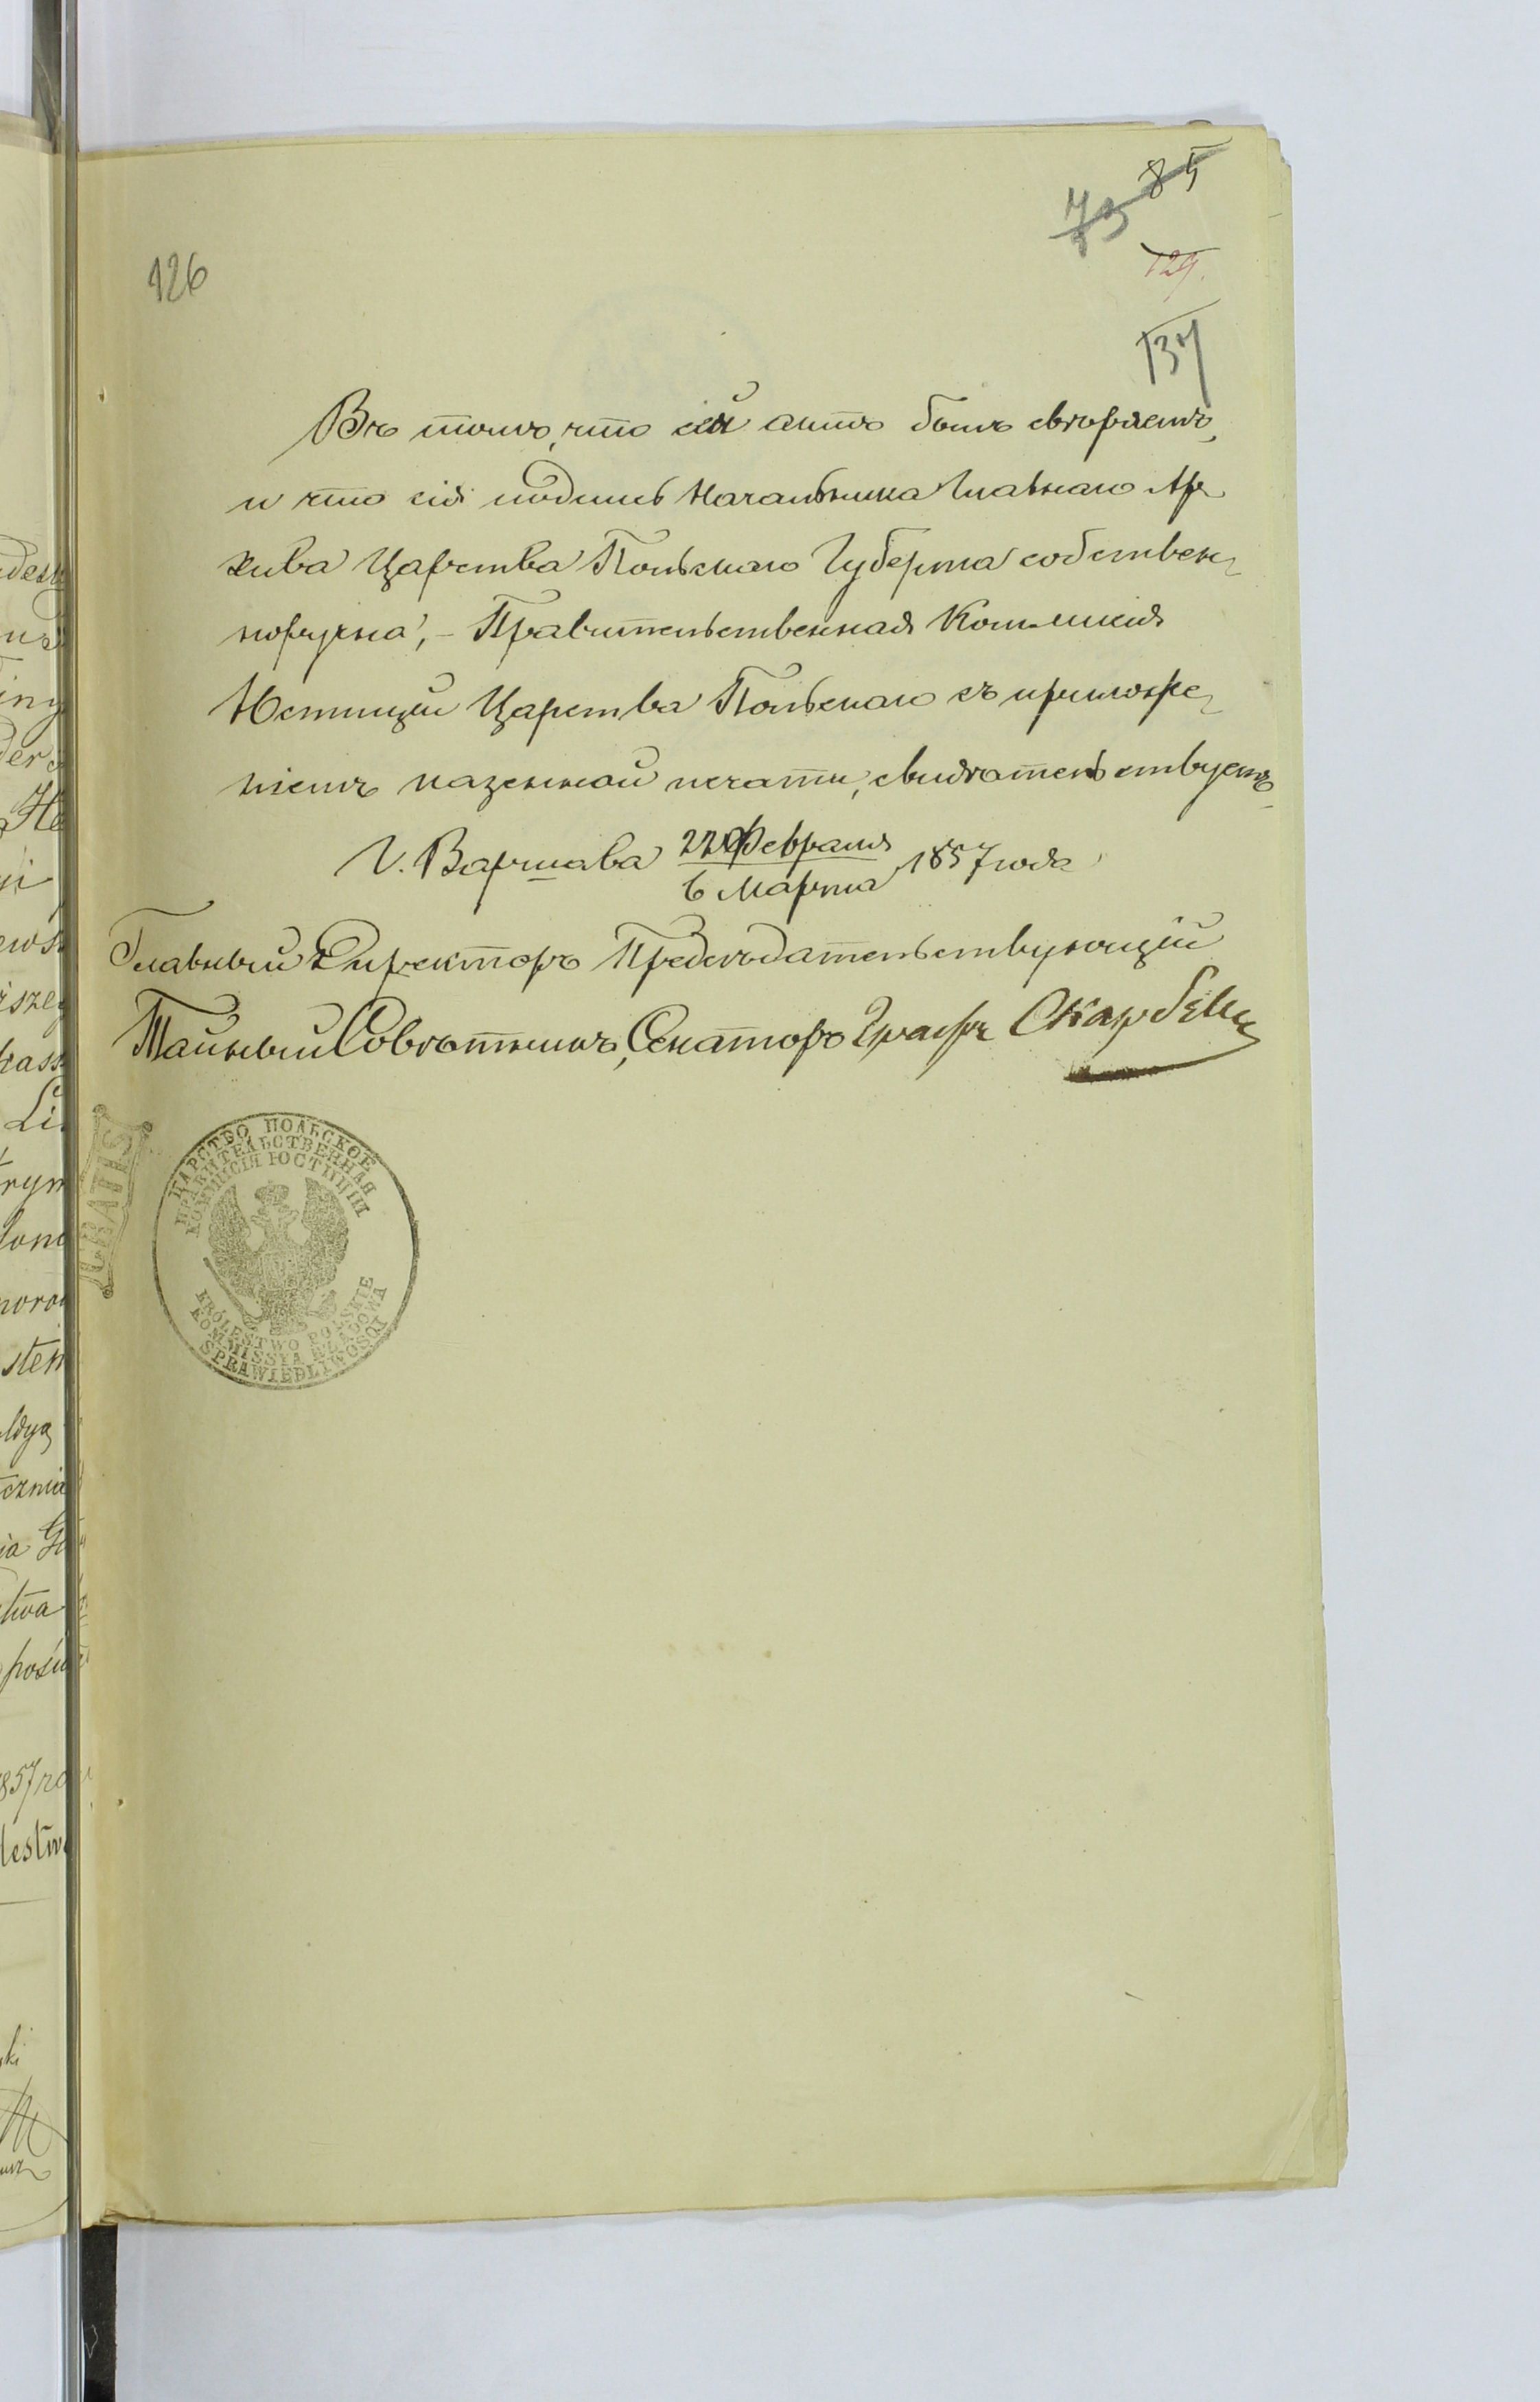 85
73
129.
126
137
Въ томъ, что сей актъ былъ свѣряемъ,
и что сія подпись Начальника Главнаго Ар
хива Царства Польскаго Губерта собствен
норучна, – Правительственная Коммисія
Юстиціи Царства Польскаго съ приложе
ніемъ казенной печати, свидѣтельствуетъ
Г. Варшава 22 Февраля
6 Марта 1857 года
Главный Директоръ Предсѣдательствующій
Тайный Совѣтникъ, Сенаторъ Графъ Скарбекъ
GRATIS
ЦАРСТВО ПОЛЬСКОЕ
ПРАВИТЕЛЬСТВЕННАЯ
КОММИСІЯ ЮСТИЦІИ
KRÓLESTWO POLSKIE
KOMMISSYA RZĄDOWA
SPRAWIEDLIWOŚCI